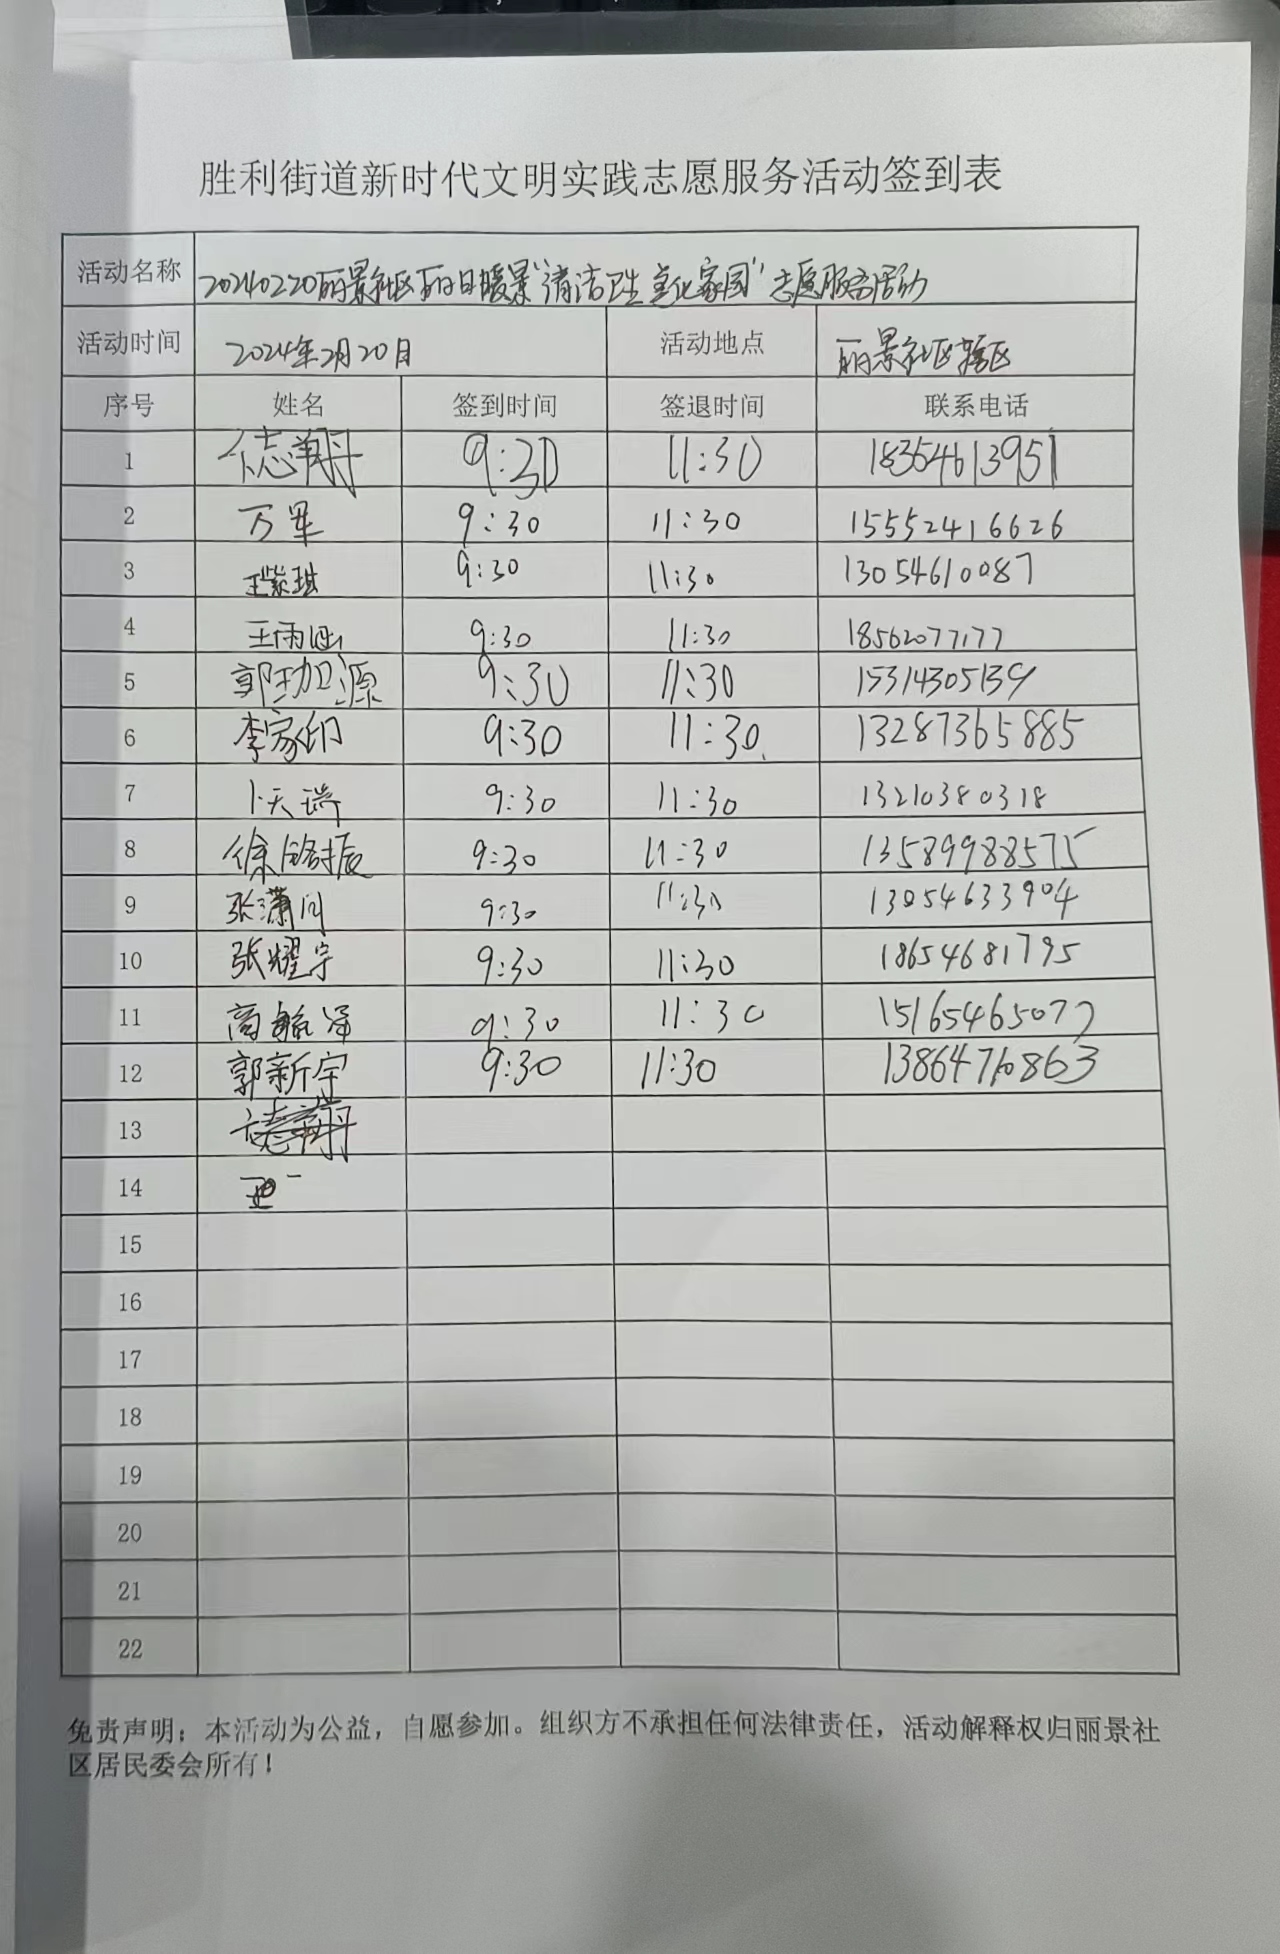 胜利街道新时代文明实践志愿服务活动签到表
活动名称 20240220丽景社区丽日暖景"清洁卫生 美化家园"志愿服务活动
活动时间 2024年2月20日 活动地点 丽景社区辖区
序号 姓名 签到时间 签退时间 联系电话
1 9:30 11:30 18364613951
2 万军 9:30 11:30 15552416626
3 王紫琪 9:30 11:30 13054610087
4 王雨涵 9:30 11:30 18562077177
5 郭珈源 9:30 11:30 15314305139
6 李家印 9:30 11:30 13287365885
7 卜天瑞 9:30 11:30 13210380318
8 9:30 11:30 13589988575
9 张潇闩 9:30 11:30 13054633904
10 张耀宇 9:30 11:30 18654681795
11 高毓泽 9:30 11:30 15165465077
12 郭新宇 9:30 11:30 13864760863
13
14
15
16
17
18
19
20
21
22
免责声明：本活动为公益，自愿参加。组织方不承担任何法律责任，活动解释权归丽景社
区居民委会所有！